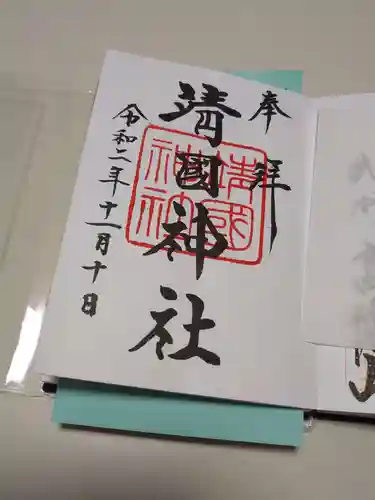 奉拝
靖國神社
靖國
神社
令和二年十一月十日